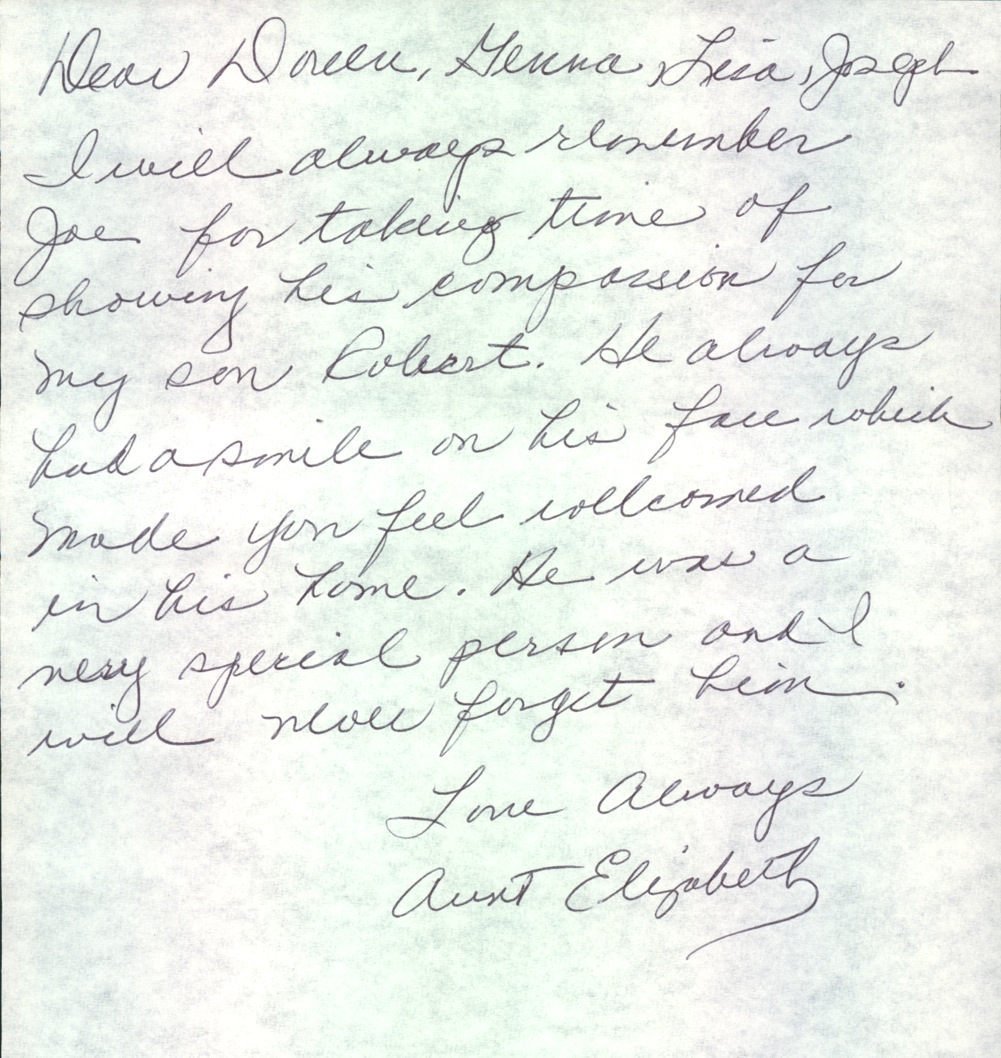 Dear Doreen, Genna, Lisa, Joseph
I will always remember
Joe for taking time of
showing his compassion for
my son Robert. He always
had a smile on his face which
made you feel wellcomed
in his home. He was a
very special person and I
will never forget him.
Love Always
Aunt Elizabeth